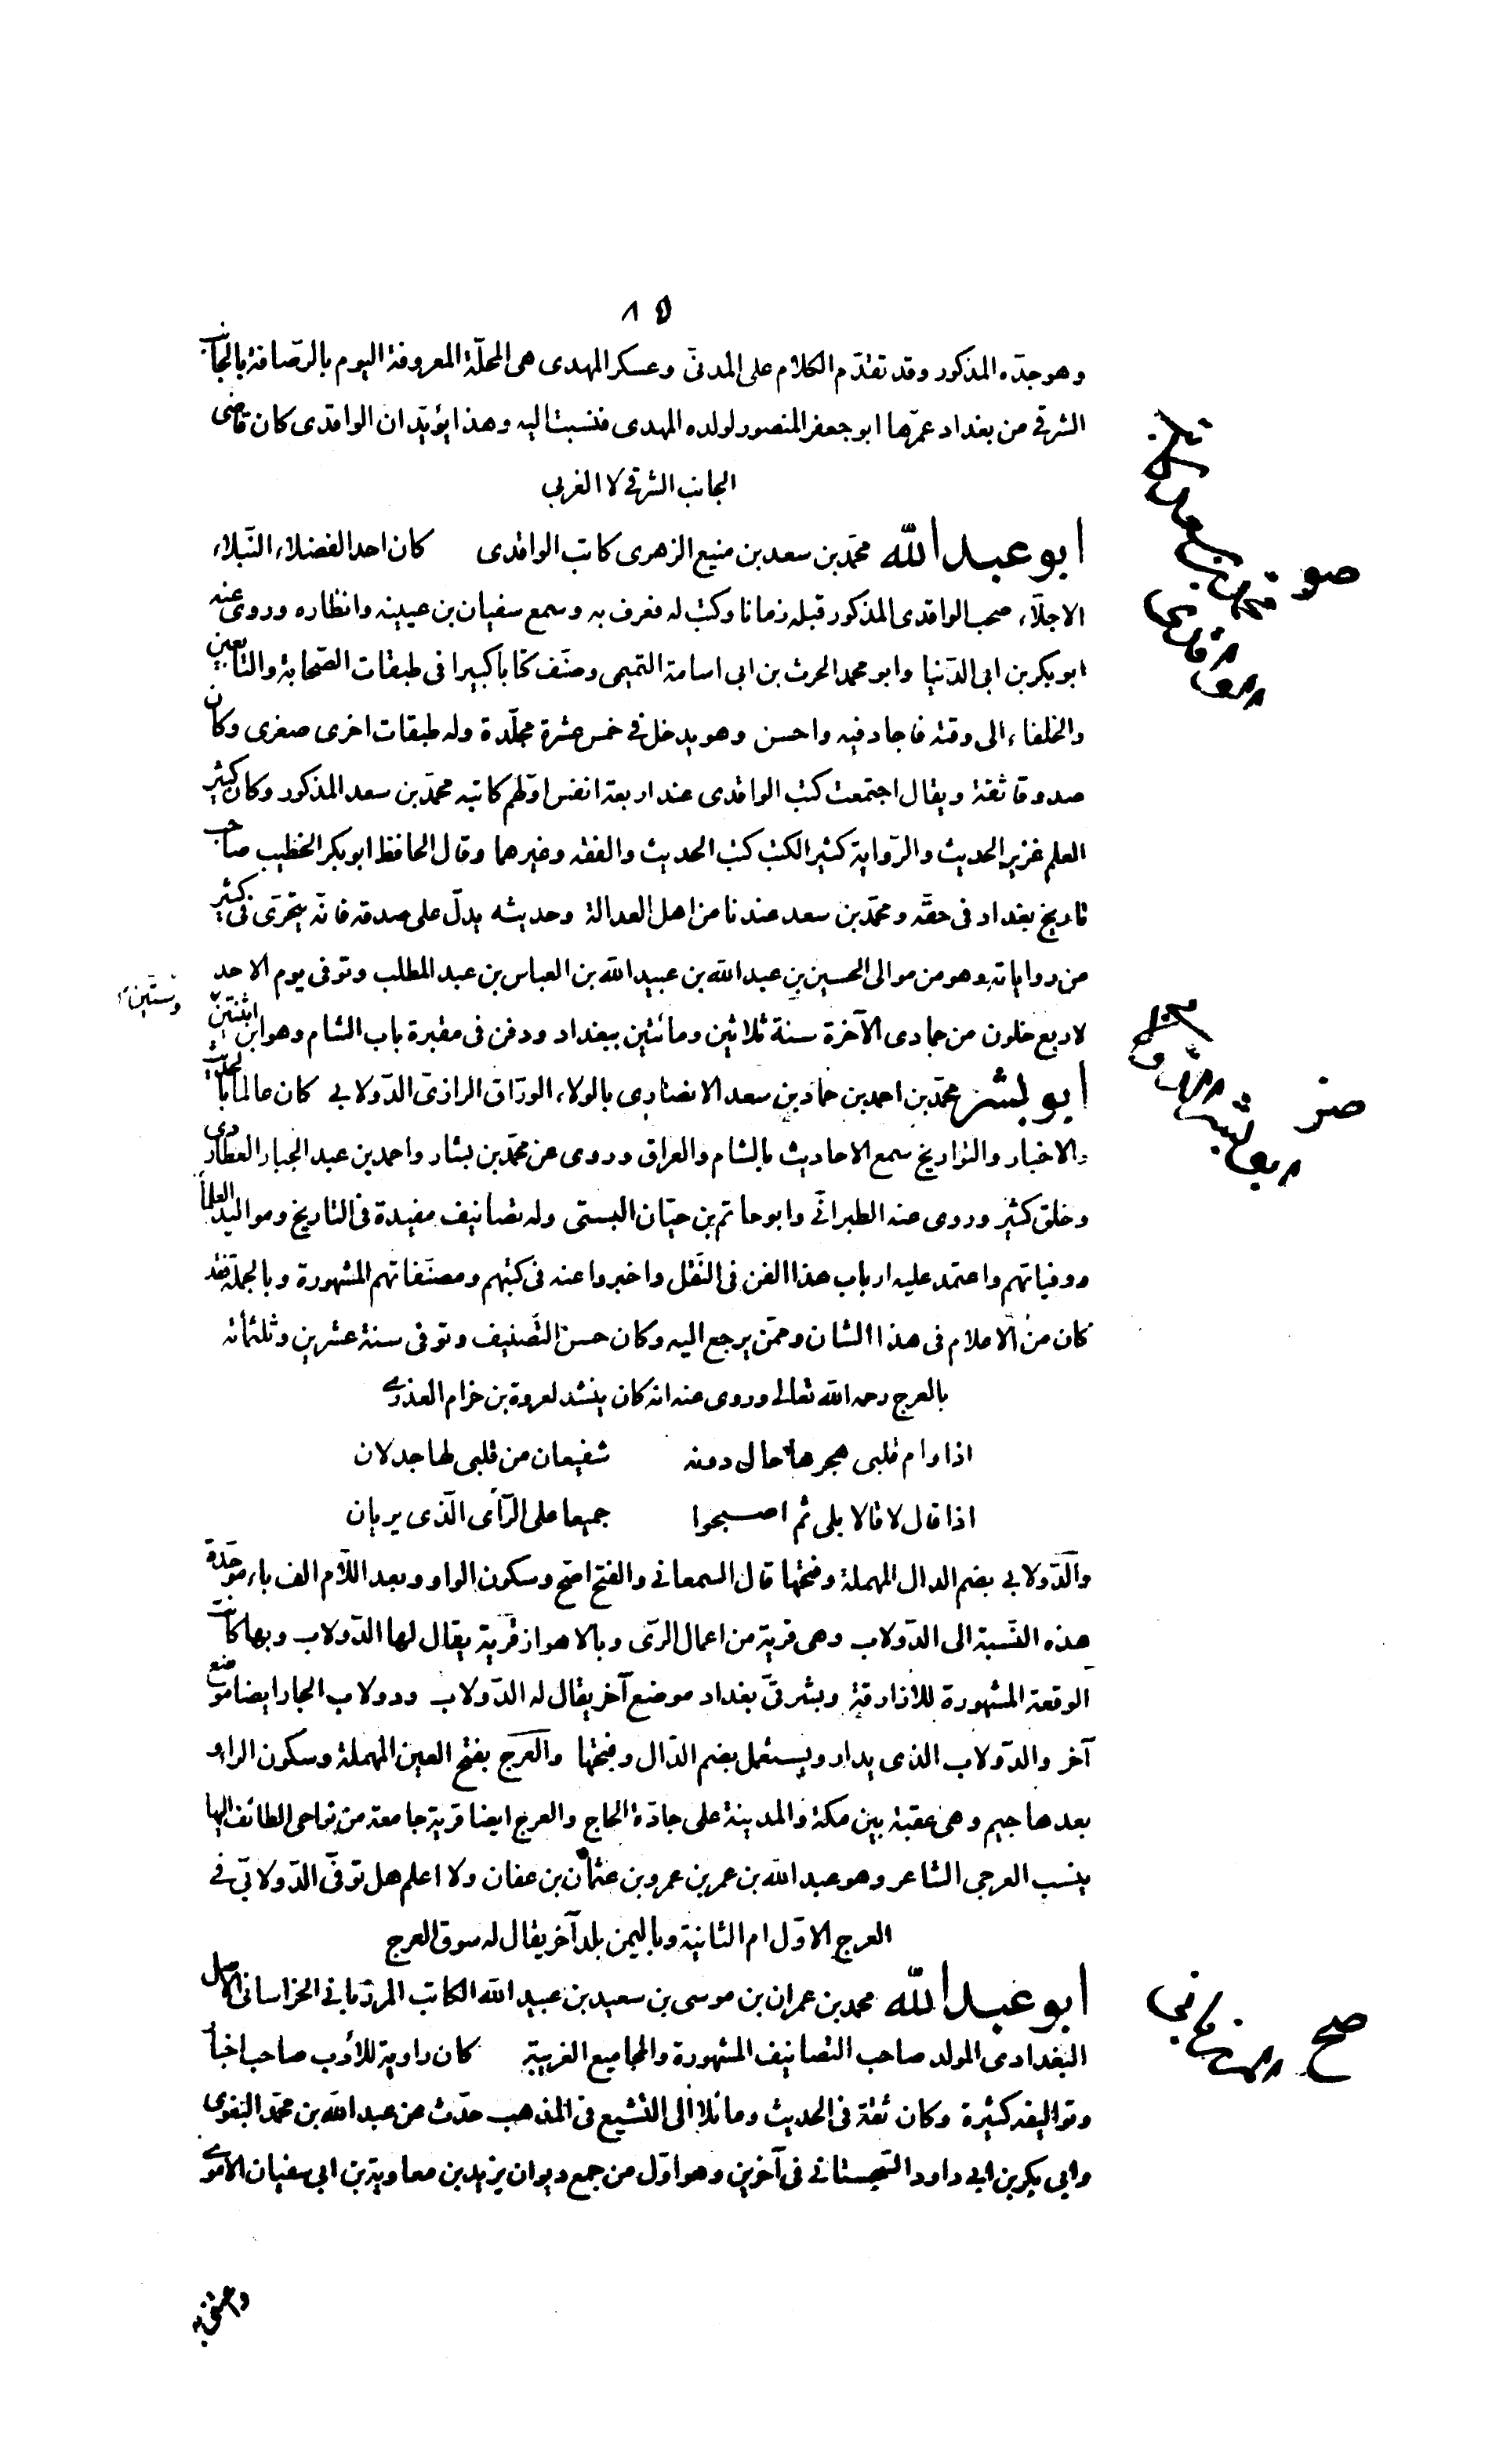 ٨٥
وهو جدّه المذكور وقد تقدّم الكلام على المدنىّ وعسكر المهدى هى المحلّة المعروفة اليوم بالرّصافة بالجانب
الشرقى من بغداد عمرّها ابو جعفر المنصور لولده المهدى فنسبت اليه وهذا يؤيّد ان الواقدى كان قاضى
الجانب الشرقى لا الغربى
أبو عبد الله محمّد بن سعد بن منيع الزهرى كاتب الواقدى كان احد الفضلاء النّبلاء
الاجلّاء صحب الواقدى المذكور قبله زمانا وكتب له فعرف به وسمع سفيان بن عيينه وانظاره وروى عنه
ابو بكر بن ابى الدّنيا وابو محمد الحرث بن ابى اسامة التميمى وصنّف كتابا كبيرا فى طبقات الصّحابة والتابعين
والخلفاء الى وقته فاجاد فيه واحسن وهو يدخل فى خمس عشرة مجلّدة وله طبقات اخرى صغرى وكان
صدوقا ثقة ويقال اجتمعت كتب الواقدى عند اربعة انفس اوّلهم كاتبه محمّد بن سعد المذكور وكان كثير
العلم غزير الحديث والرّواية كثير الكتب كتب الحديث والفقه وغيرهما وقال الحافظ ابو بكر الخطيب صاحب
تاريخ بغداد فى حقّه ومحمّد بن سعد عندنا من اهل العدالة وحديثه يدلّ على صدقه فانّه يتحرّى فى كثير
من رواياته وهو من موالى الحسين بن عبد الله بن عبيد الله بن العباس بن عبد المطلب وتوفى يوم الاحد
لاربع خلون من جمادى الآخرة سنة ثلاثين ومائتين ببغداد ودفن فى مقبرة باب الشام وهو ابن اثنتين
وستين
أبو بشر محمّد بن احمد بن حمّاد بن سعد الانصارى بالولاء الورّاق الرازىّ الدّولابى كان عالما بالحديث
والاخبار والتواريخ سمع الاحاديث بالشام والعراق وروى عن محمّد بن بشار واحمد بن عبد الجبار العطاردى
وخلق كثير وروى عنه الطبرانىّ وابو حاتم بن حبّان البستى وله تصانيف مفيدة فى التاريخ ومواليد العلماء
ووفياتهم واعتمد عليه ارباب هذا الفن فى النّقل واخبروا عنه فى كتبهم ومصنّفاتهم المشهورة وبالجملة فقد
كان من الاعلام فى هذا الشان وممّن يرجع اليه وكان حسن التّصنيف وتوفى سنة عشرين وثلثمائه
بالعرج رحمه الله تعالى وروى عنه انه كان ينشد لعروة بن خزام العذرى
اذا رام قلبى هجرها حال دونه شفيعان من قلبى لها جدلان
اذا قال لا قالا بلى ثم اصبحوا جميعا على الرّأى الّذى يريان
والدّولابى بضم الدال المهملة وفتحها قال السمعانى والفتح اصح وسكون الواو وبعد اللّام الف باء موحّدة
هذه النّسبة الى الدّولاب وهى قرية من اعمال الرّى وبالاهواز قرية يقال لها الدّولاب وبها كانت
الوقعة المشهورة للازارقة وبشرقىّ بغداد موضع آخر يقال له الدّولاب ودولاب الجار ايضا موضع
آخر والدّولاب الذى يدار ويستعمل بضم الدّال وفتحها والعرج بفتح العين المهملة وسكون الراء و
بعدها جيم وهى عقبة بين مكة والمدينة على جادّة الحاج والعرج ايضا قرية جامعة من نواحى الطائف اليها
ينسب العرجى الشاعر وهو عبد الله بن عمر بن عمرو بن عثمان بن عفان ولا اعلم هل توفّى الدّولابىّ فى
العرج الاوّل ام الثانية وباليمن بلد آخر يقال له سوق العرج
أبو عبد الله محمد بن عمران بن موسى بن سعيد بن عبيد الله الكاتب المرزبانى الخراسانى الاصل
البغدادى المولد صاحب التصانيف المشهورة والمجاميع الغريبة كان راوية للأدب صاحب اخبار
وتواليفه كثيرة وكان ثقة فى الحديث ومائلا الى التشيع فى المذهب حدّث عن عبد الله بن محمّد البغوى
وابى بكر بن ابى داود السّجستانى فى آخرين وهو اوّل من جمع ديوان يزيد بن معاوية بن ابى سفيان الاموى
صو
صز
صح
المرزبانى